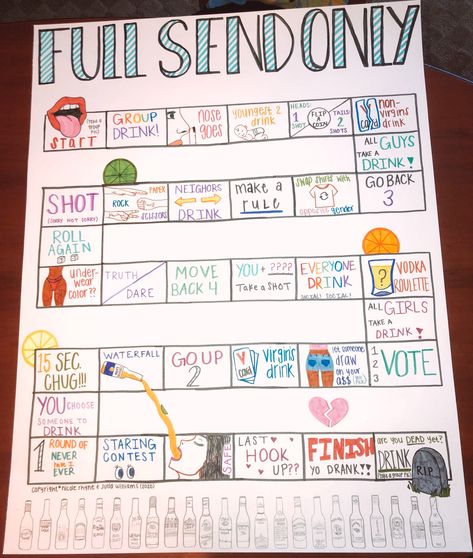 FULL SEND ONLY
START
(take a group pic)
GROUP
DRINK!
nose
goes
youngest 2
drink
HEADS:
1
SHOT
FLIP
A
COIN
TAILS:
2
SHOTS
V
card
non-
virgins
drink
ALL GUYS
TAKE A
DRINK!
GO BACK
3
swap shirts with
opposite gender
make a
rule
NEIGHORS
DRINK
PAPER
ROCK
SCISSORS
SHOT
(SORRY NOT SORRY)
ROLL
AGAIN
under-
wear
color??
TRUTH
DARE
MOVE
BACK 4
YOU + ????
Take a SHOT
EVERYONE
DRINK
SOCIAL! SOCIAL!
?
VODKA
ROULETTE
ALL GIRLS
TAKE A
DRINK!
1
2
3
VOTE
let someone
draw
on your
a$$
V
card
virgins
drink
GO UP
2
WATERFALL
15 SEC.
CHUG!!!
YOU CHOOSE
SOMEONE TO
DRINK
1 ROUND OF
NEVER
have I
EVER
STARING
CONTEST
SAFE
LAST
HOOK
UP???
FINISH
YO DRANK!!
are you DEAD yet?
DRINK
(take a group pic)
RIP
Copyright © nicole rhyne & Julia Williams (2020)